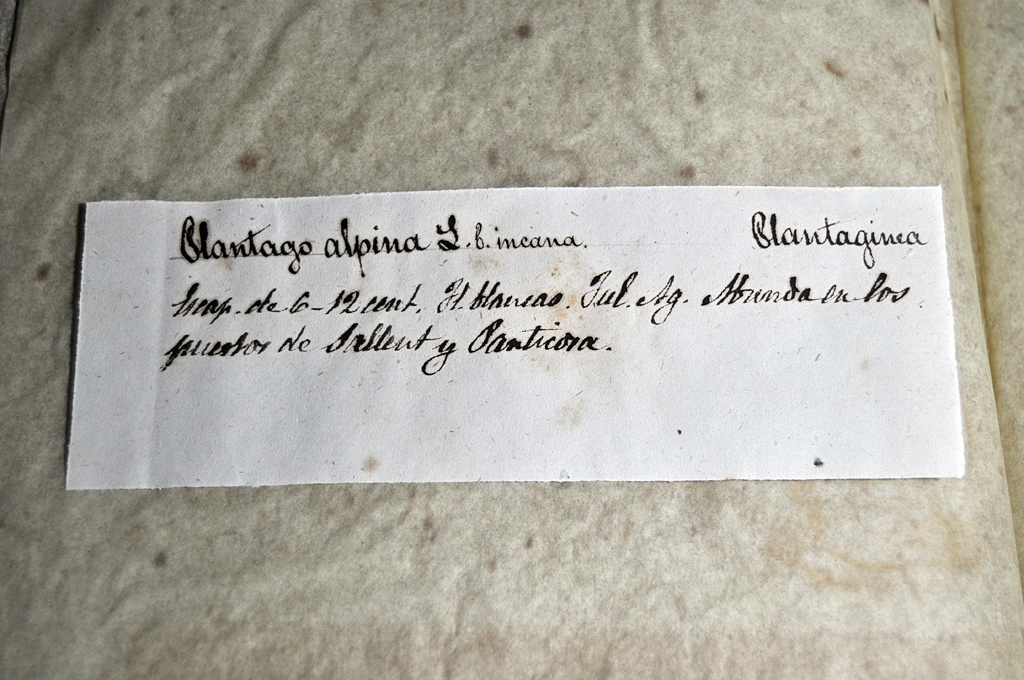 Plantago alpina L. b. incana. Plantaginea
Escap. de 6-12 cent. Fl. blancas. Jul. Ag. Abunda en los
puertos de Sallent y Panticosa.